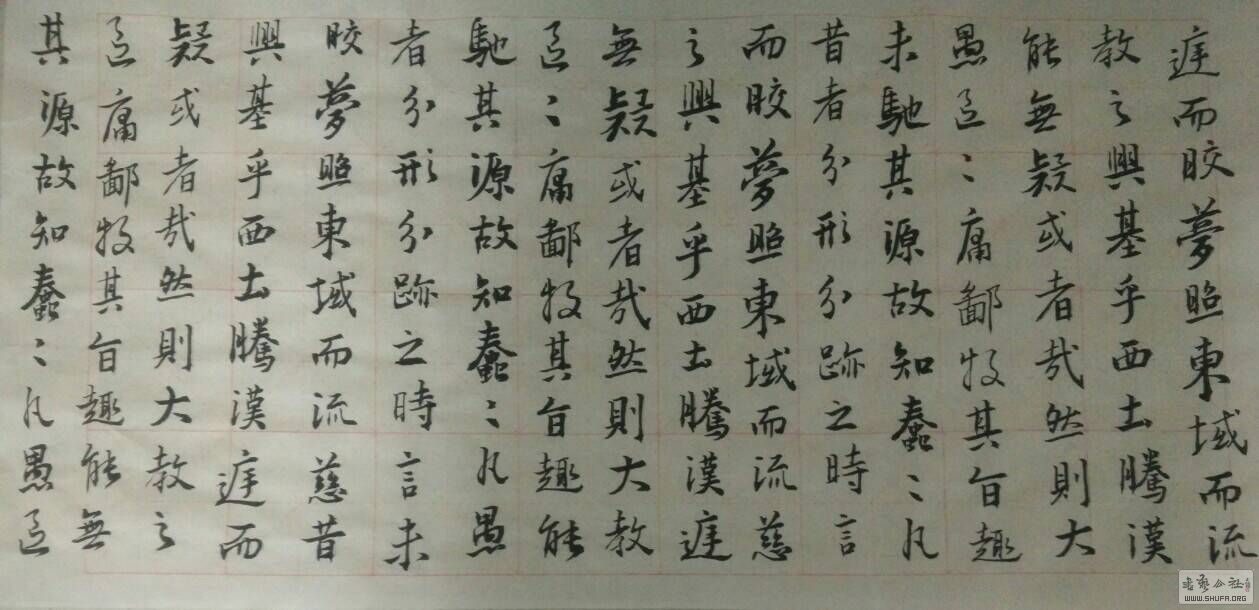 庭而晈夢照東域而流
教之興基乎西土騰漢
能無疑或者哉然則大
愚區〻庸鄙投其旨趣
未馳其源故知蠢〻凡
昔者分形分跡之時言
而晈夢照東域而流慈
之興基乎西土騰漢庭
無疑或者哉然則大教
區〻庸鄙投其旨趣能
馳其源故知蠢〻凡愚
者分形分跡之時言未
晈夢照東域而流慈昔
興基乎西土騰漢庭而
疑或者哉然則大教之
區庸鄙投其旨趣能無
其源故知蠢〻凡愚區
書藝公社
WWW.SHUFA.ORG